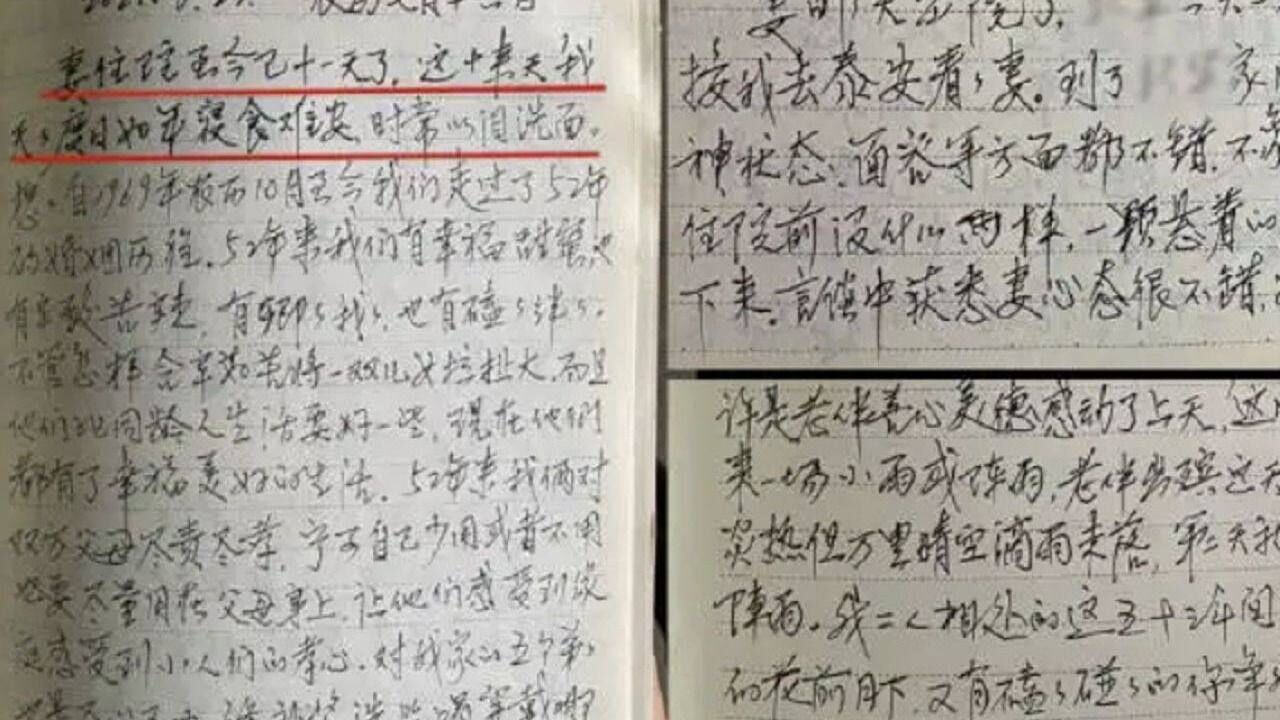 妻住院至今已十一天了,这十来天我
天天度日如年寝食难安,时常以泪洗面。
想,自1969年农历10月至今我们走过了52年
的婚姻历程。52年来我们有幸福
有 苦辣,有卿卿我我,也有磕磕绊绊。
不管怎样含辛茹苦将一双儿女拉扯大,而且
他们比同龄人生活要好一些,现在他们
都有了幸福美好的生活。52年来我俩对
双方父母尽责尽孝,宁可自己少用或者不用
也要尽量用在父母身上,让他们感受到
感受到 人们的孝心。对我家的五个弟
接我去泰安看看妻。到了 家
神状态、面容等方面都不错,不
住院前没什么两样,一颗悬着的
下来。言谈中获悉妻心态很不错,
许是老伴善心美德感动了上天,这
来一场小雨或阵雨,老伴出殡这
炎热但万里晴空滴雨未落,第二天
阵雨。我二人相处的这五十二年间
的花前月下,又有磕磕碰碰的